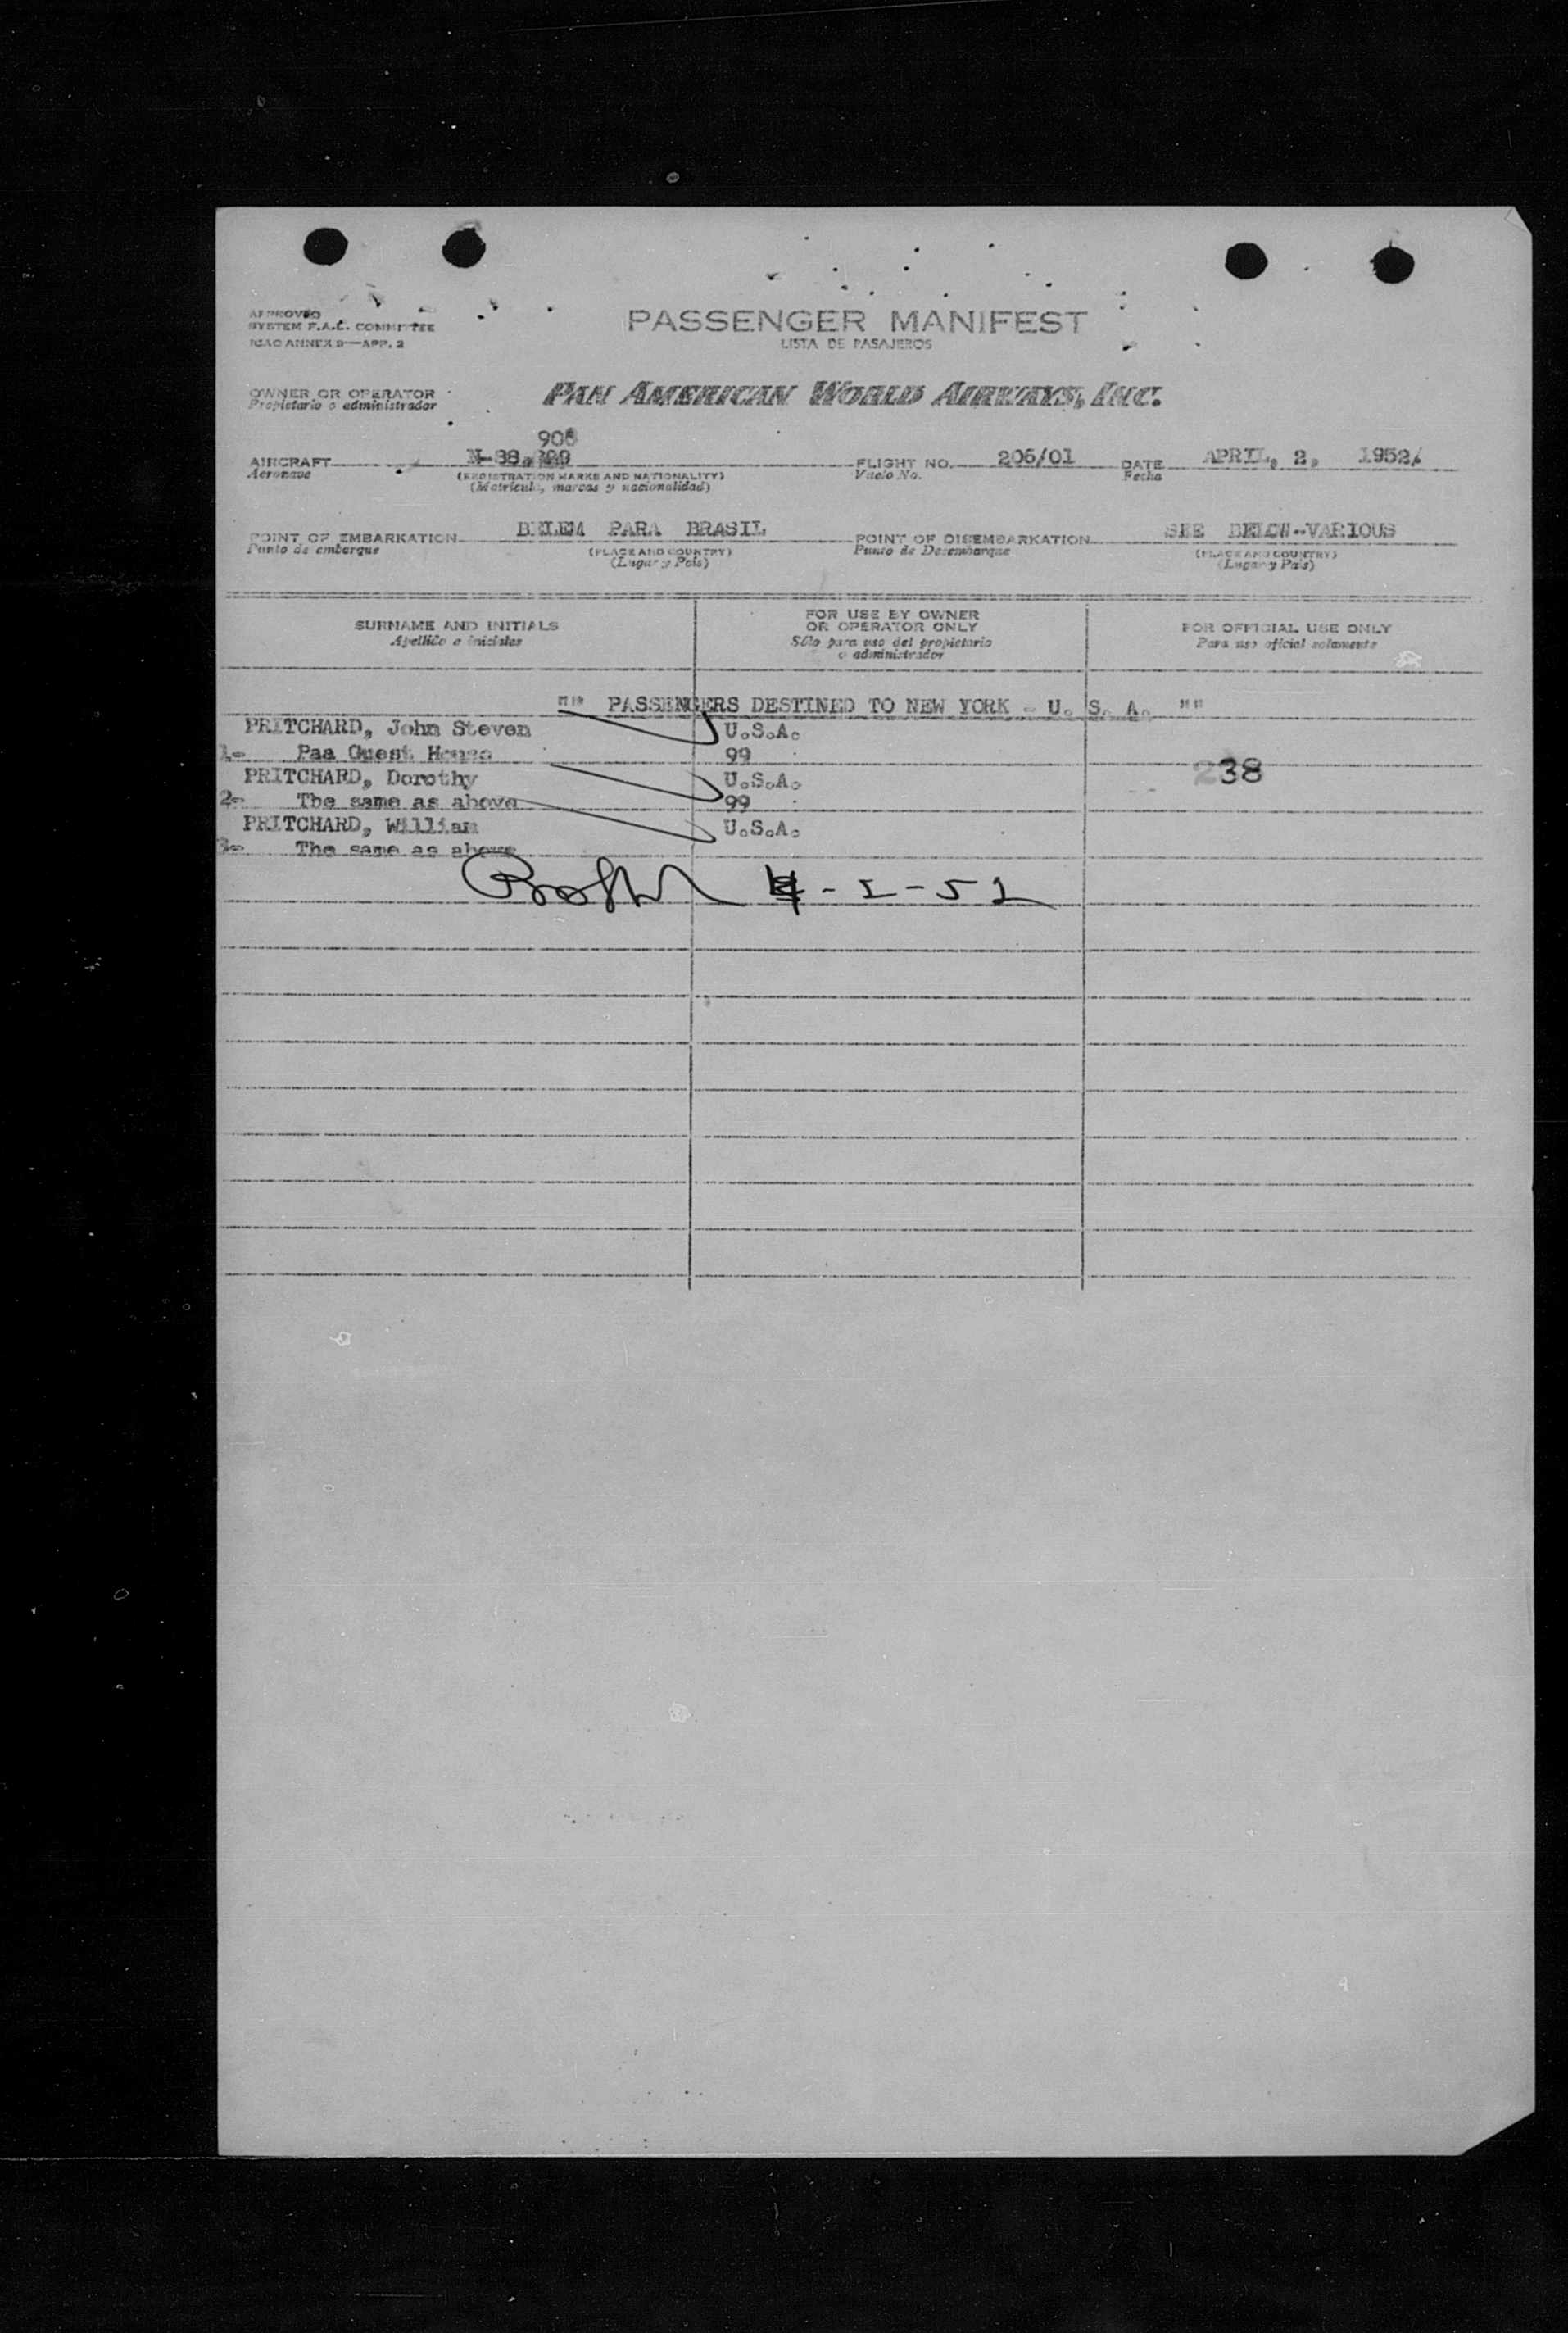 APPROVED
SYSTEM F.A.L. COMMITTEE
ICAO ANNEX 9—APP. 2
PASSENGER MANIFEST
LISTA DE PASAJEROS
OWNER OR OPERATOR
Propietario o administrador
PAN AMERICAN WORLD AIRWAYS, INC.
AIRCRAFT N-88,
Aeronave
(REGISTRATION MARKS AND NATIONALITY)
(Matricula, marcas y nacionalidad)
FLIGHT NO. 206/01
Vuelo No.
DATE APRIL, 2, 1952/
Fecha
POINT OF EMBARKATION BELEM PARA BRASIL
Punto de embarque
(PLACE AND COUNTRY)
(Lugar y País)
POINT OF DISEMBARKATION SEE BELOW-VARIOUS
Punto de Desembarque
(PLACE AND COUNTRY)
(Lugar y País)
SURNAME AND INITIALS
Apellido e iniciales
FOR USE BY OWNER
OR OPERATOR ONLY
Sólo para uso del propietario
o administrador
FOR OFFICIAL USE ONLY
Para uso oficial solamente
"" PASSENGERS DESTINED TO NEW YORK - U. S. A. ""
PRITCHARD, John Steven U.S.A.
1- Paa Guest House 99
PRITCHARD, Dorothy U.S.A. 238
2- The same as above 99
PRITCHARD, William U.S.A.
3- The same as above